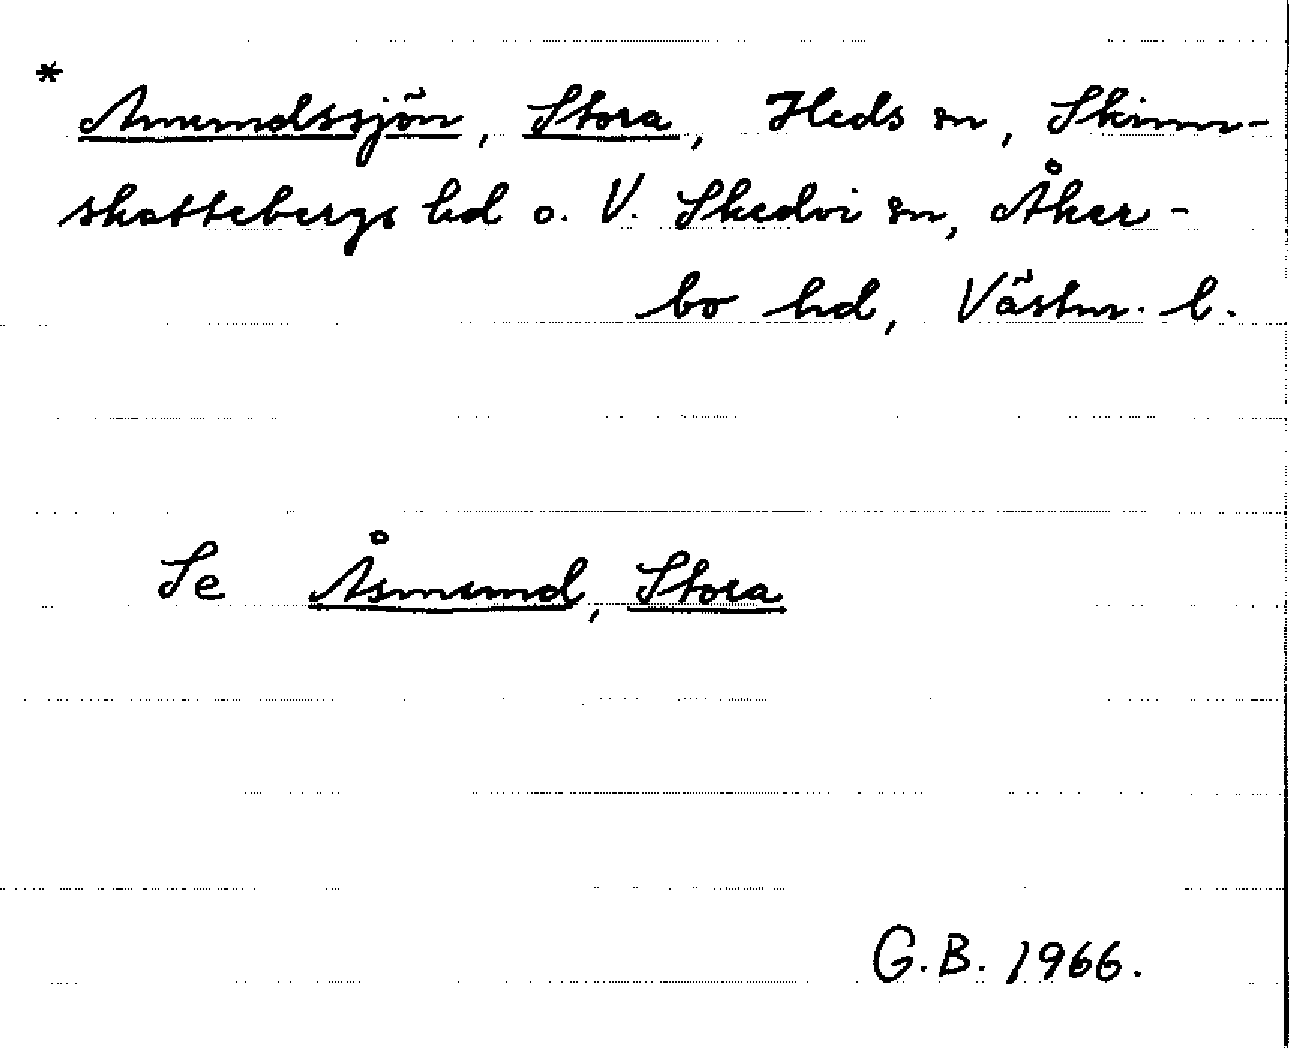 * Amundssjön, Stora, Heds sn, Skinn-
skattebergs hd o. V. Skedvi sn, Åker-
bo hd, Västm. l.
Se Åsmund, Stora
G.B. 1966.